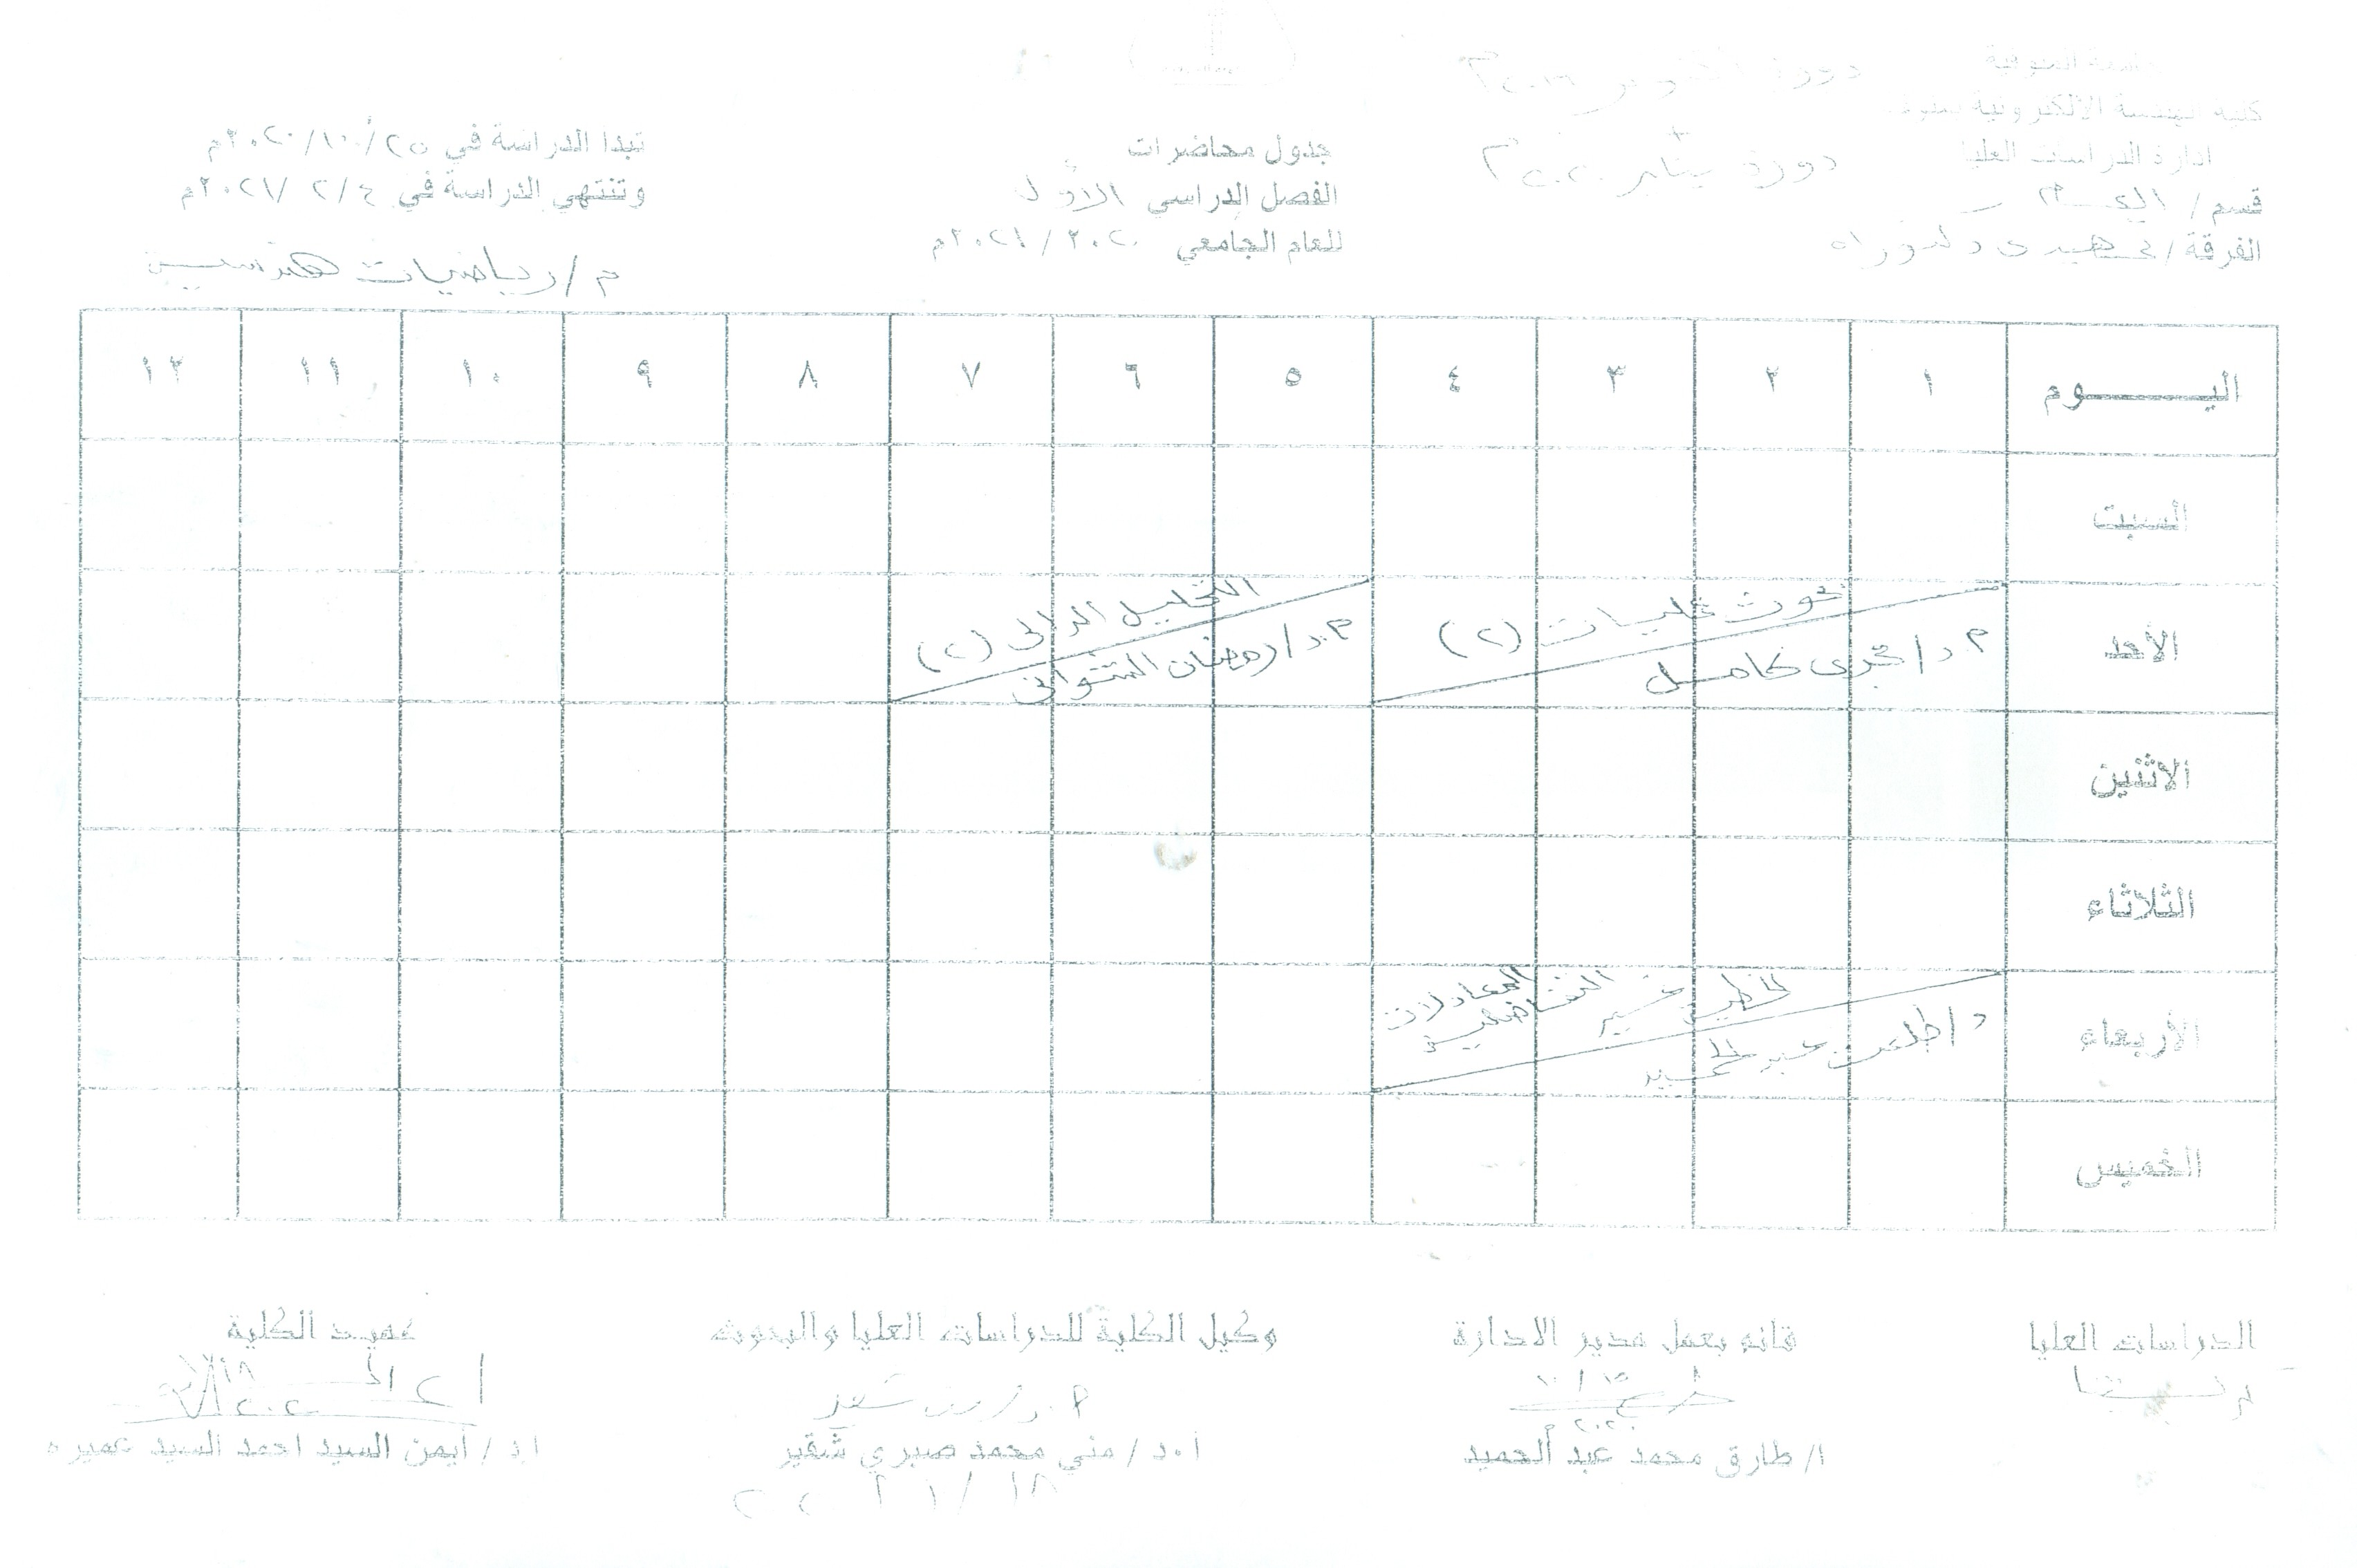 كلية الهندسة الالكترونية بمنوف
ادارة الدراسات العليا
قسم /
الفرقة / تمهيدى دكتوراه
دورة أكتوبر
دورة يناير ٢٠٢٠م
جدول محاضرات
الفصل الدراسي الأول
للعام الجامعي ٢٠٢٠ / ٢٠٢١م
تبدأ الدراسة في ٢٥/١٠/٢٠٢٠م
وتنتهي الدراسة في ٤/٢/٢٠٢١م
م/رياضيات هندسية
اليـــــوم ١ ٢ ٣ ٤ ٥ ٦ ٧ ٨ ٩ ١٠ ١١ ١٢
السبت
الأحد
بحوث عمليات (٢)
م.د/ مجدى كامل
التحليل الدالى (٢)
م.د/ رمضان الشنوانى
الاثنين
الثلاثاء
الأربعاء
المعادلات التفاضلية
د/ طلعت عبد الحميد
الخميس
الدراسات العليا
قائم بعمل مدير الادارة
١٥/١٠
٢٠٢٠م
ا/ طارق محمد عبد الحميد
وكيل الكلية للدراسات العليا والبحوث
أ.د/ مني محمد صبري شقير
عميد الكلية
ا.د/ أيمن السيد احمد السيد عميره